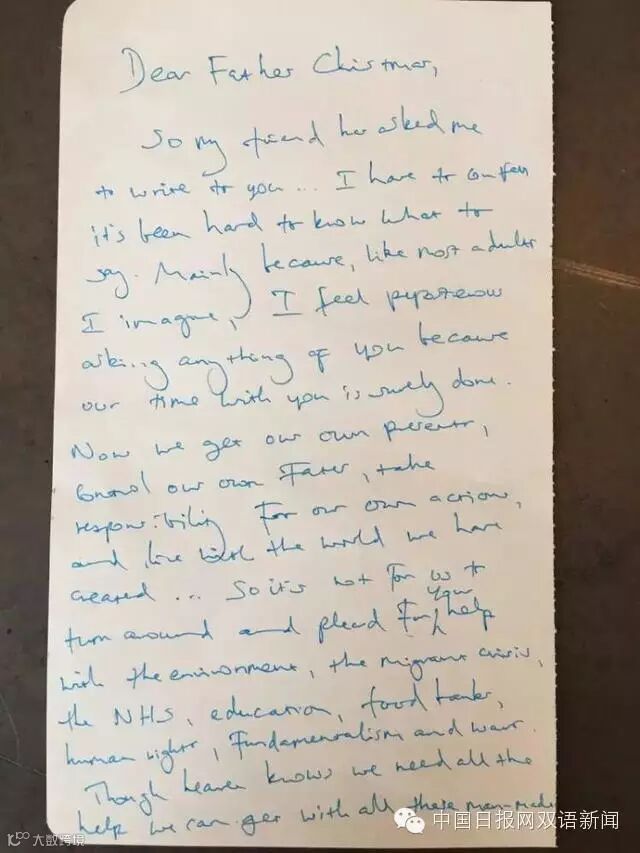 Dear Father Christmas,
So my friend has asked me
to write to you... I have to confess
it's been hard to know what to
say. Mainly because, like most adults
I imagine, I feel preposterous
asking anything of you because
our time with you is surely done.
Now we get our own presents,
control our own Fates, take
responsibility For our own actions,
and live with the world we have
created... So it's not For us to
turn around and plead For your help
with the environment, the migrant crisis,
the NHS, education, food banks,
human rights, Fundamentalism and wars.
Though heaven knows we need all the
help we can get with all these man-made
中国日报网双语新闻
大数跨境